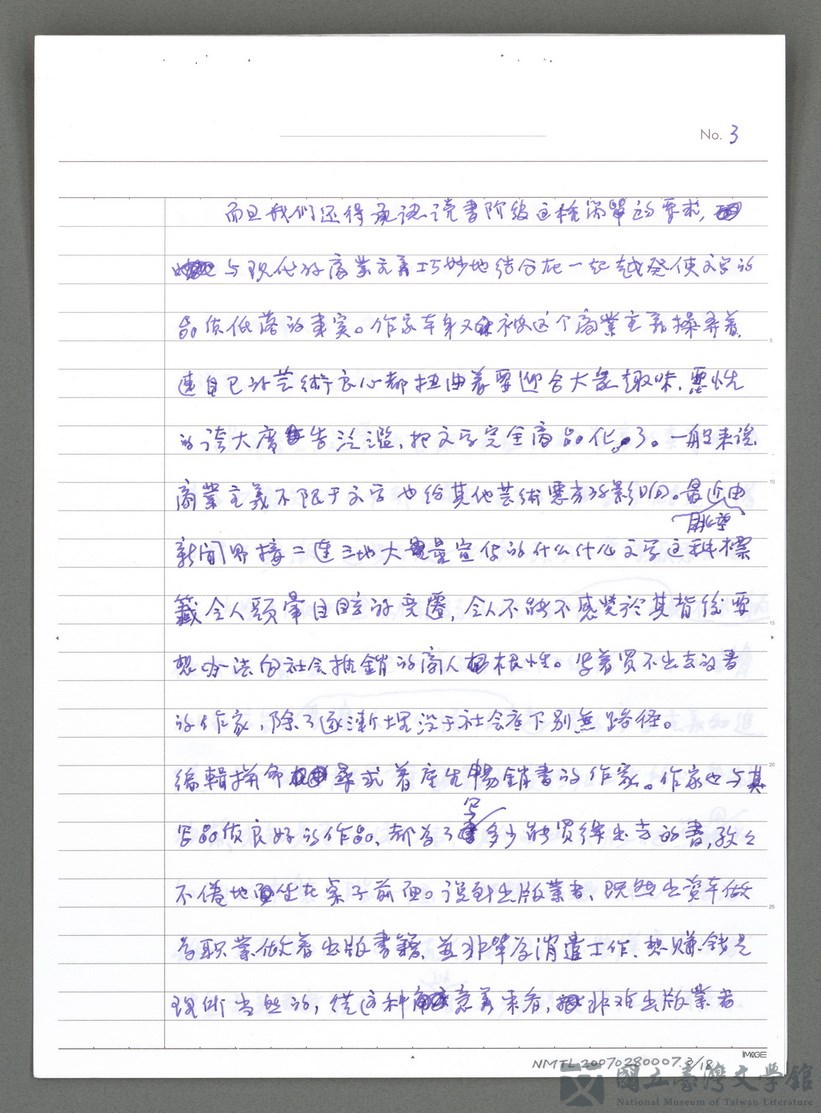 No. 3
而且我们还得承认读書阶级这种簡單的要求,
与现代的商業主義巧妙地结合在一起越発使文学的
品质低落的事実。作家本身又被这个商業主義操弄着,
連自己的芸術良心都扭曲着要迎合大衆趣味,
的誇大廣告泛濫,把文学完全商品化了。一般来说
商業主義不限于文学也给其他芸術要素的影响。最近由
新闻界接二連三地大量宣传的什么什么文学这种標
籤令人頭暈目眩的变遷,令人不能不感覚於其背後要
想办法向社会推銷的商人根性。写着買不出去的書
的作家,除了逐漸埋没于社会底下别無路径。
編輯拼命尋求着產生暢銷書的作家。作家也与其
写品质良好的作品,都为了写多少能買得出去的書,孜々
不倦地坐在桌子前面。說到出版業者,既然出資本做
为职業做着出版書籍,並非单为消遣工作,想赚钱是
理所当然的,從这种意義来看,非难出版業者
IMAGE
NMTL20070280007 3/18
國立臺灣文學館
National Museum of Taiwan Literature